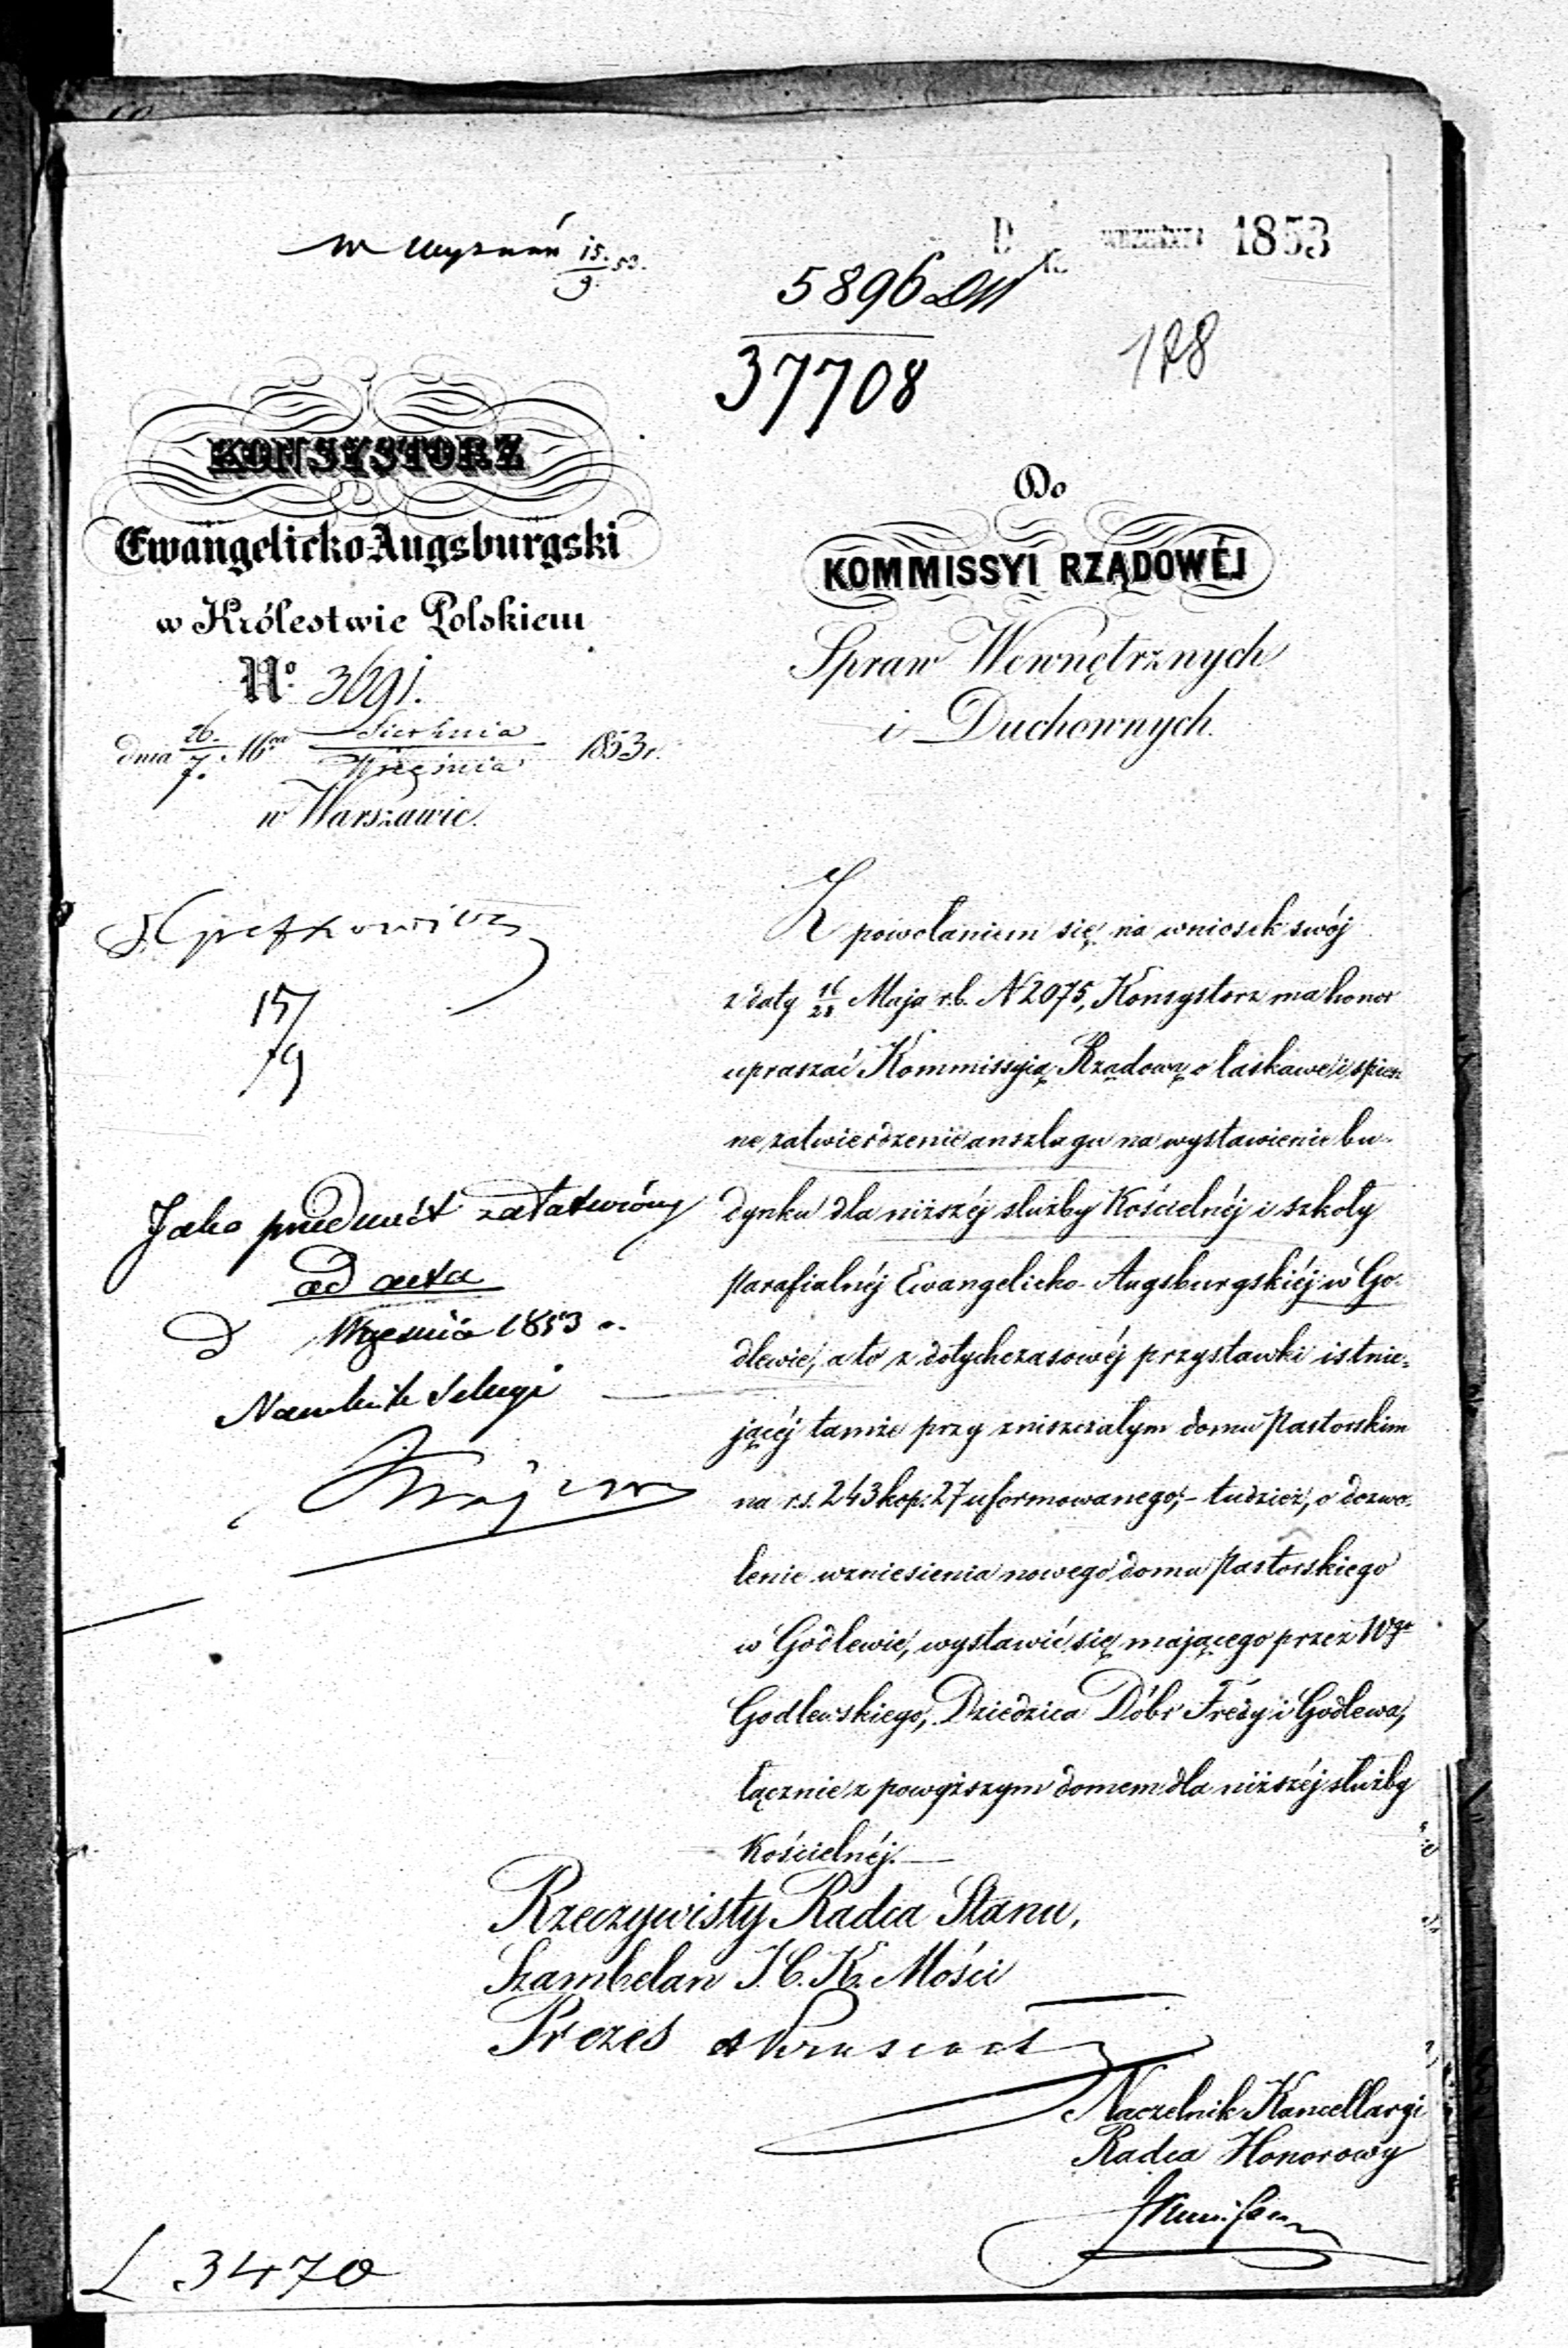 W Wyznań 15/9 53.
D Września 1853
5896
37708
128
KONSYSTORZ
Ewangelicko-Augsburgski
w Królestwie Polskiem
No. 3691.
dnia 26./7. Mca Sierpnia/Września 1853 r.
w Warszawie.
Do
KOMMISSYI RZĄDOWÉJ
Spraw Wewnętrznych
i Duchownych.
15/9
Jako przedmiot załatwiony
ad acta
D Września 1853 r.
Naczelnik Sekcyi
Z powołaniem się na wniosek swój
z daty 16/28 Maja r.b. N 2075, Konsystorz ma honor
upraszać Kommissyią Rządową o łaskawe i spiesz
ne zatwierdzenie anszlagu na wystawienie bu-
dynku dla niższéj służby Kościelnéj i szkoły
Parafialnéj Ewangelicko-Augsburgskiéj w Go-
dlewie, a to z dotychczasowéj przystawki istnie-
jącéj tamże przy zniszczałym domu Pastorskim
na r.s. 243 kop: 27 uformowanego; – tudzież, o dozwo-
lenie wzniesienia nowego domu Pastorskiego
w Godlewie, wystawić się mającego przez Wgo
Godlewskiego, Dziedzica Dóbr Frédy i Godlewa,
łącznie z powyższym domem dla niższéj służby
Kościelnéj. —
Rzeczywisty Radca Stanu,
Szambelan J. C. K. Mości
Prezes
Naczelnik Kancellaryi
Radca Honorowy
L 3470